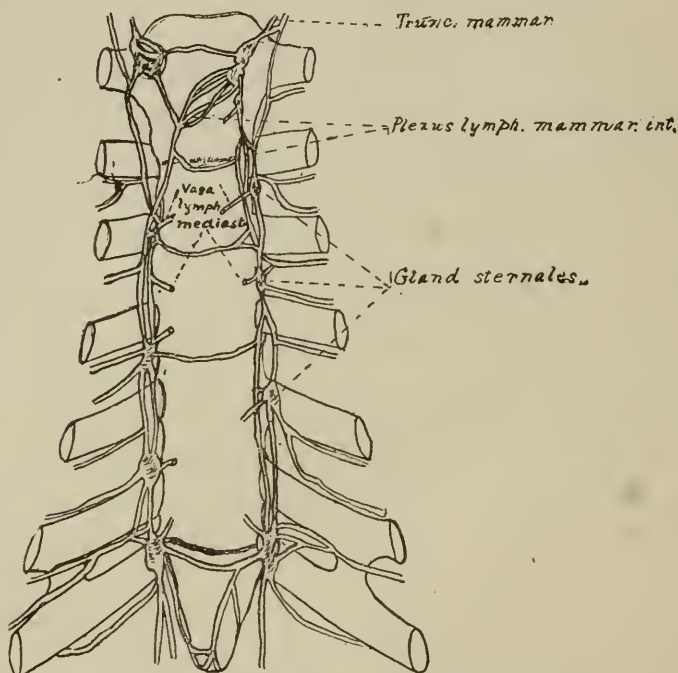 Trunc. mammar
Plexus lymph. mammar. int.
Vasa
lymph.
mediast.
Gland sternales.